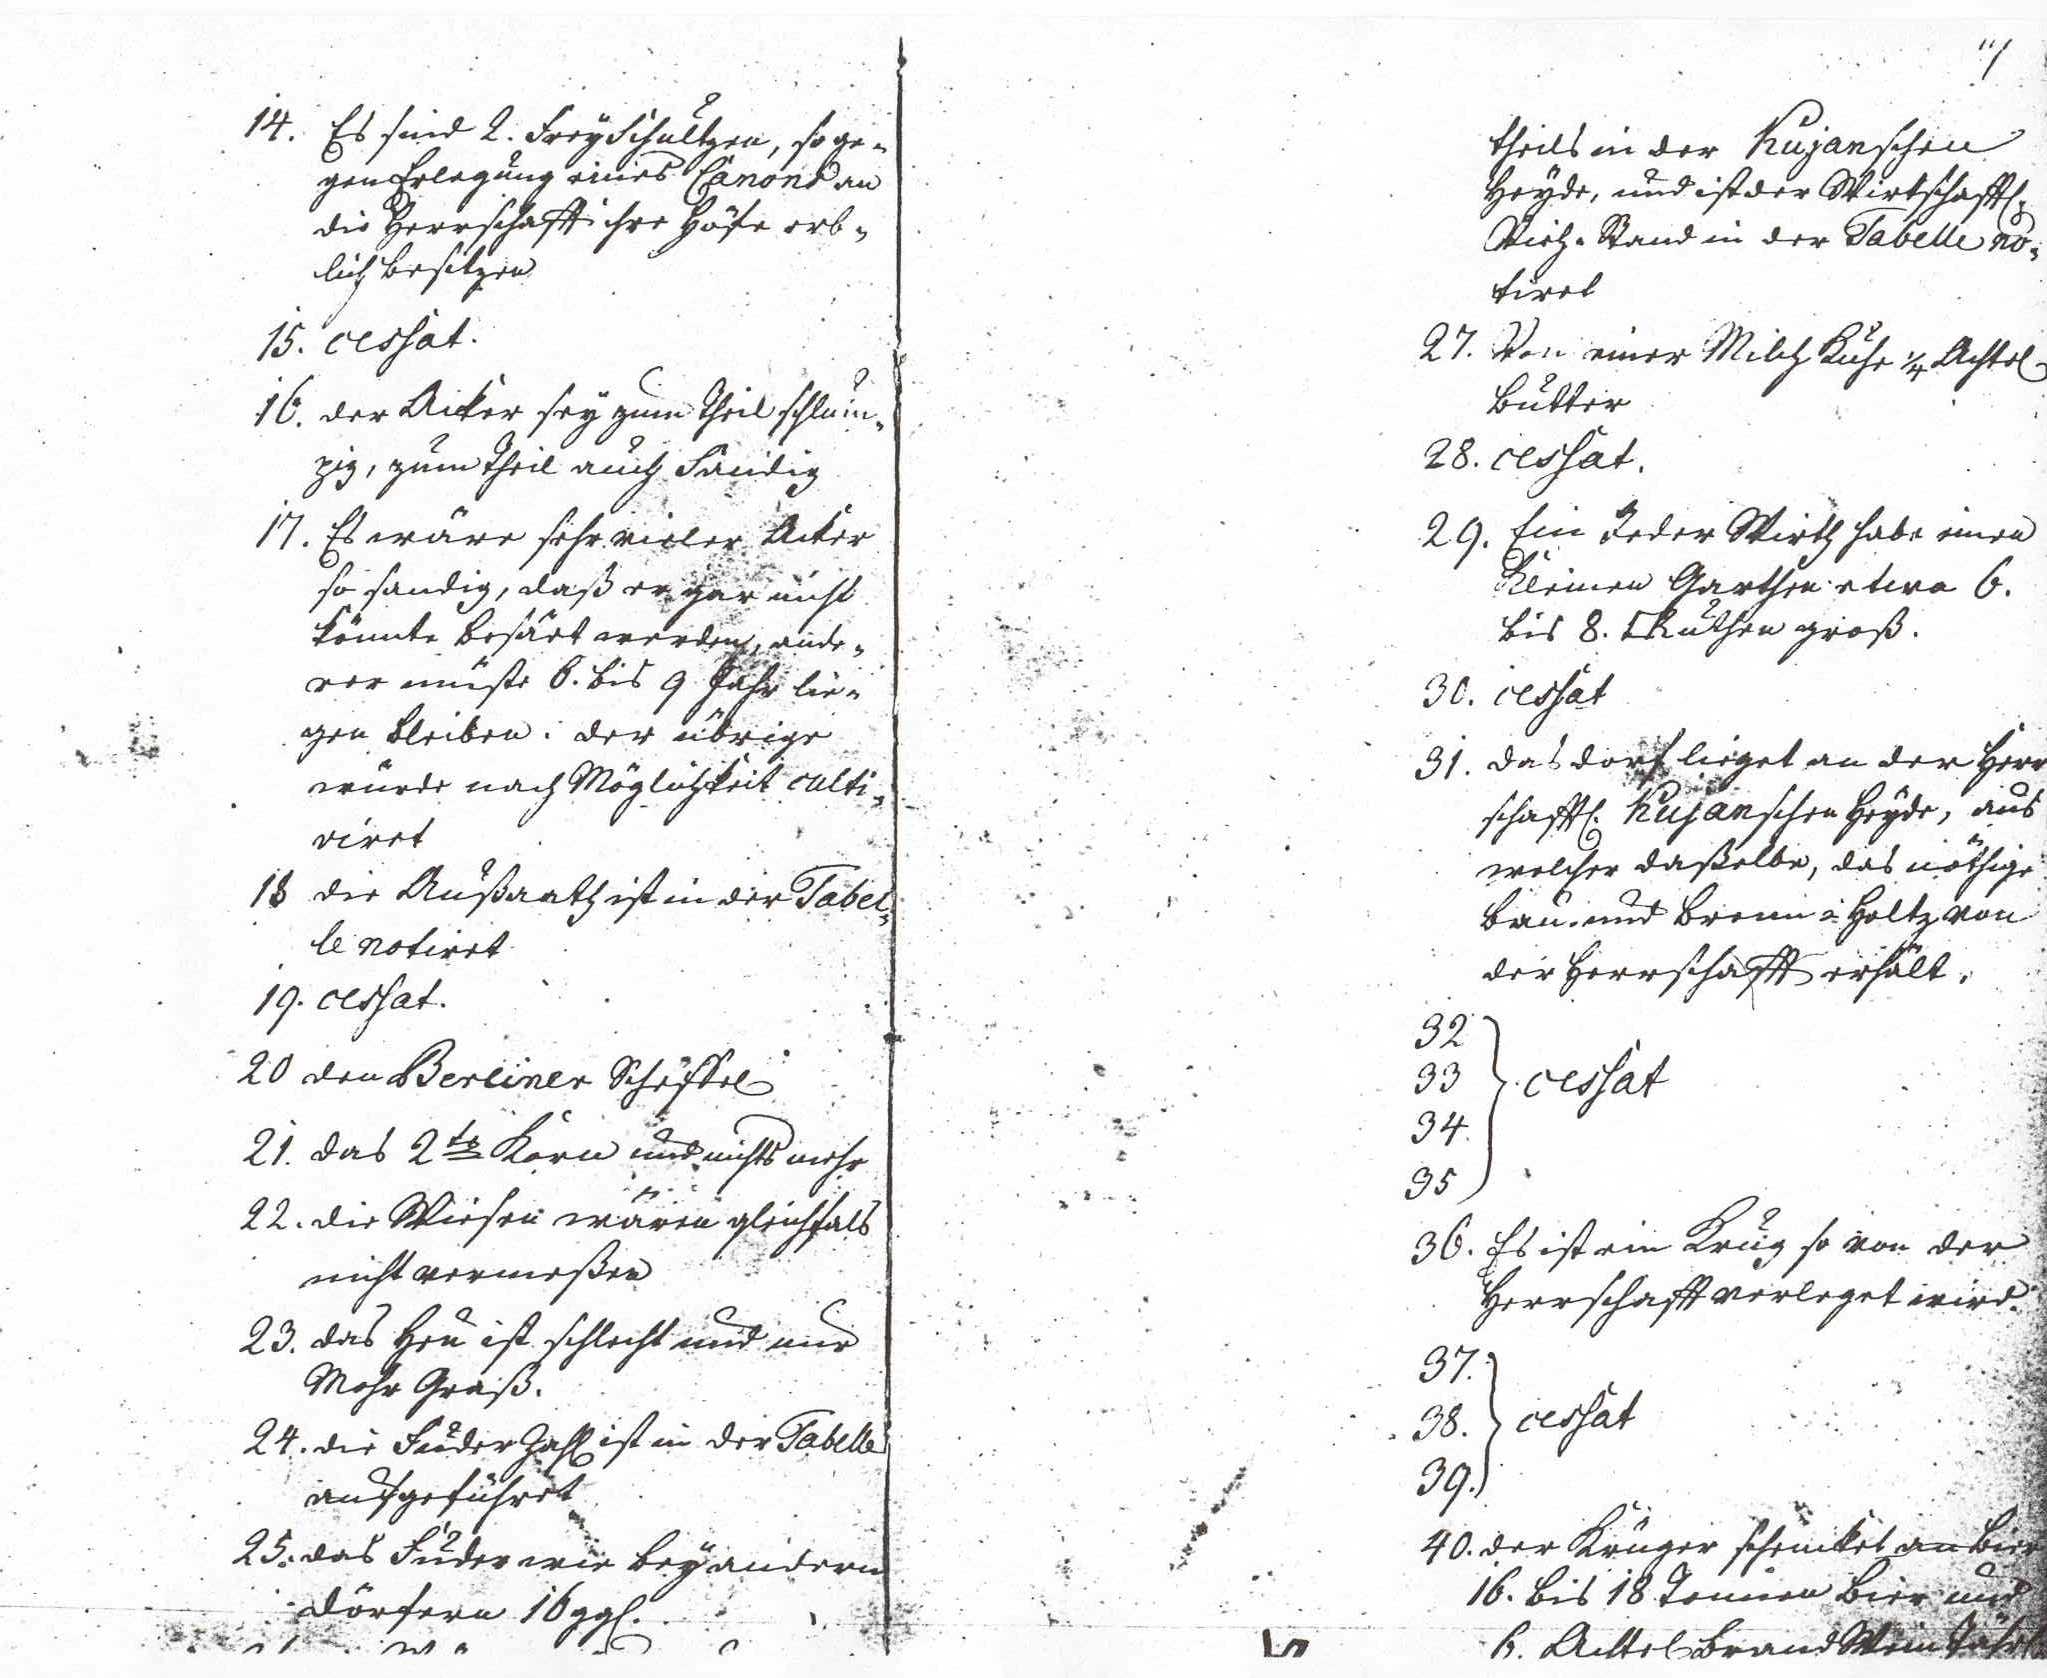 14. Es sind 2. FreySchultzen, so ge-
gen Erlegung eines Canons an
die Herrschafft ihre Höfe erb-
lich besitzen
15. cessat.
16. der Acker sey zum Theil schlum-
pig, zum Theil auch Sandig
17. Es wäre sehr vieler Acker
so sandig, daß er gar nicht
könnte besäet werden, ande-
rer müste 6. bis 9 Jahr lie-
gen bleiben. der übrige
würde nach Möglichkeit culti-
viret
18 die Außaath ist in der Tabel-
le notiret
19. cessat.
20 den Berliner Scheffel
21. das 2te Korn und nichts mehr
22. die Wiesen wären gleichfals
nicht vermeßen
23. das Heu ist schlecht und nur
Mohr Graß.
24. die Fuder Zahl ist in der Tabelle
aufgeführet
25. das Fuder wie bey andern
Dörfern 16 ggl.
theils in der Kujanschen
Heyde, und ist der Wirtschafftl.
Vieh-Stand in der Tabelle no-
tiret
27. Von einer Milch Kuhe 1/4 Achtel
Butter
28. cessat.
29. Ein Jeder Wirth habe einen
Kleinen Garthen etwa 6.
bis 8. □Ruthen groß.
30. cessat
31. das dorf lieget an der Herr
schafftl. Kujanschen Heyde, aus
welcher daßelbe, das nöthige
Bau- und Brenn-Holtz von
der Herrschafft erhält.
32
33 cessat
34.
35
36. Es ist ein Krug so von der
Herrschafft verleget wird.
37.
38. cessat
39.
40. der Krüger schencket an Bier
16. bis 18 Tonnen Bier und
6. Achtel BrandWein Jährl